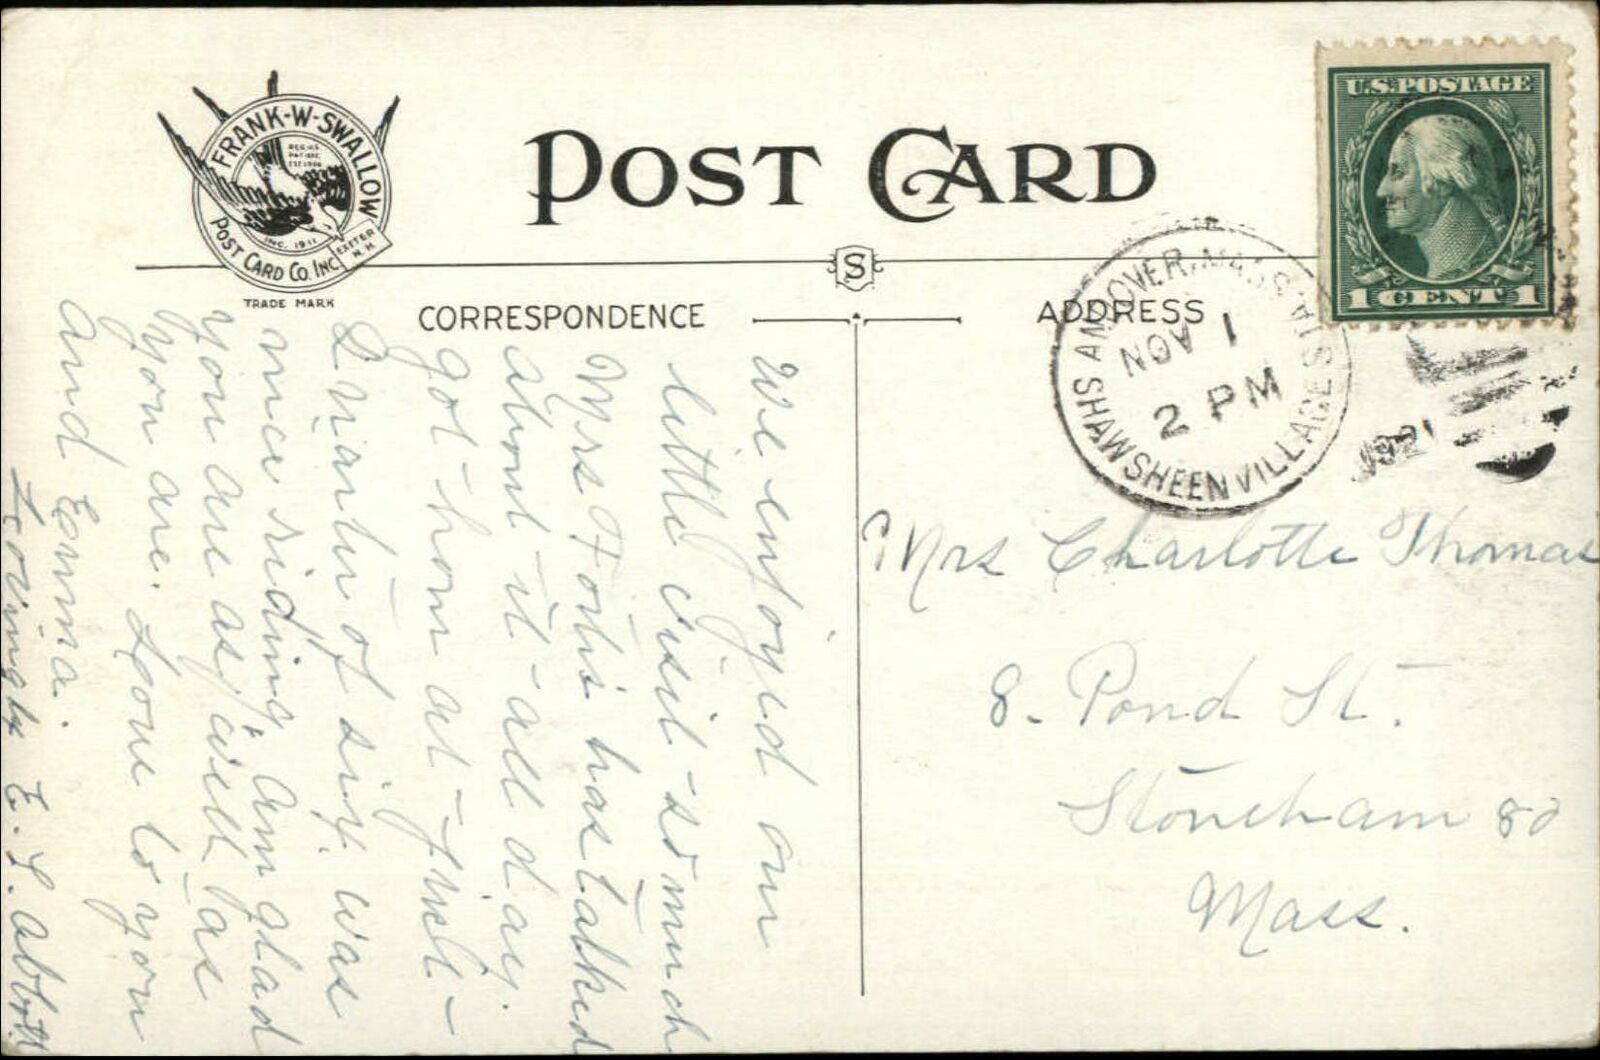 FRANK-W-SWALLOW
POST CARD CO. INC.
INC. 1911
EXETER
N. H.
TRADE MARK
POST CARD
S
CORRESPONDENCE
ADDRESS
U.S. POSTAGE
1 CENT 1
ANDOVER, MASS.
SHAWSHEEN VILLAGE STA.
NOV 1
2 PM
1921
We enjoyed our
little visit so much
Mrs has talked
about it all day.
got home at just
Quarter of six, was
nice riding, am glad
you are as well as
you are. Love to you
and Emma.
Lovingly E. S. Abbott
Mrs Charlotte Thomas
8. Pond St.
Stoneham 80
Mass.